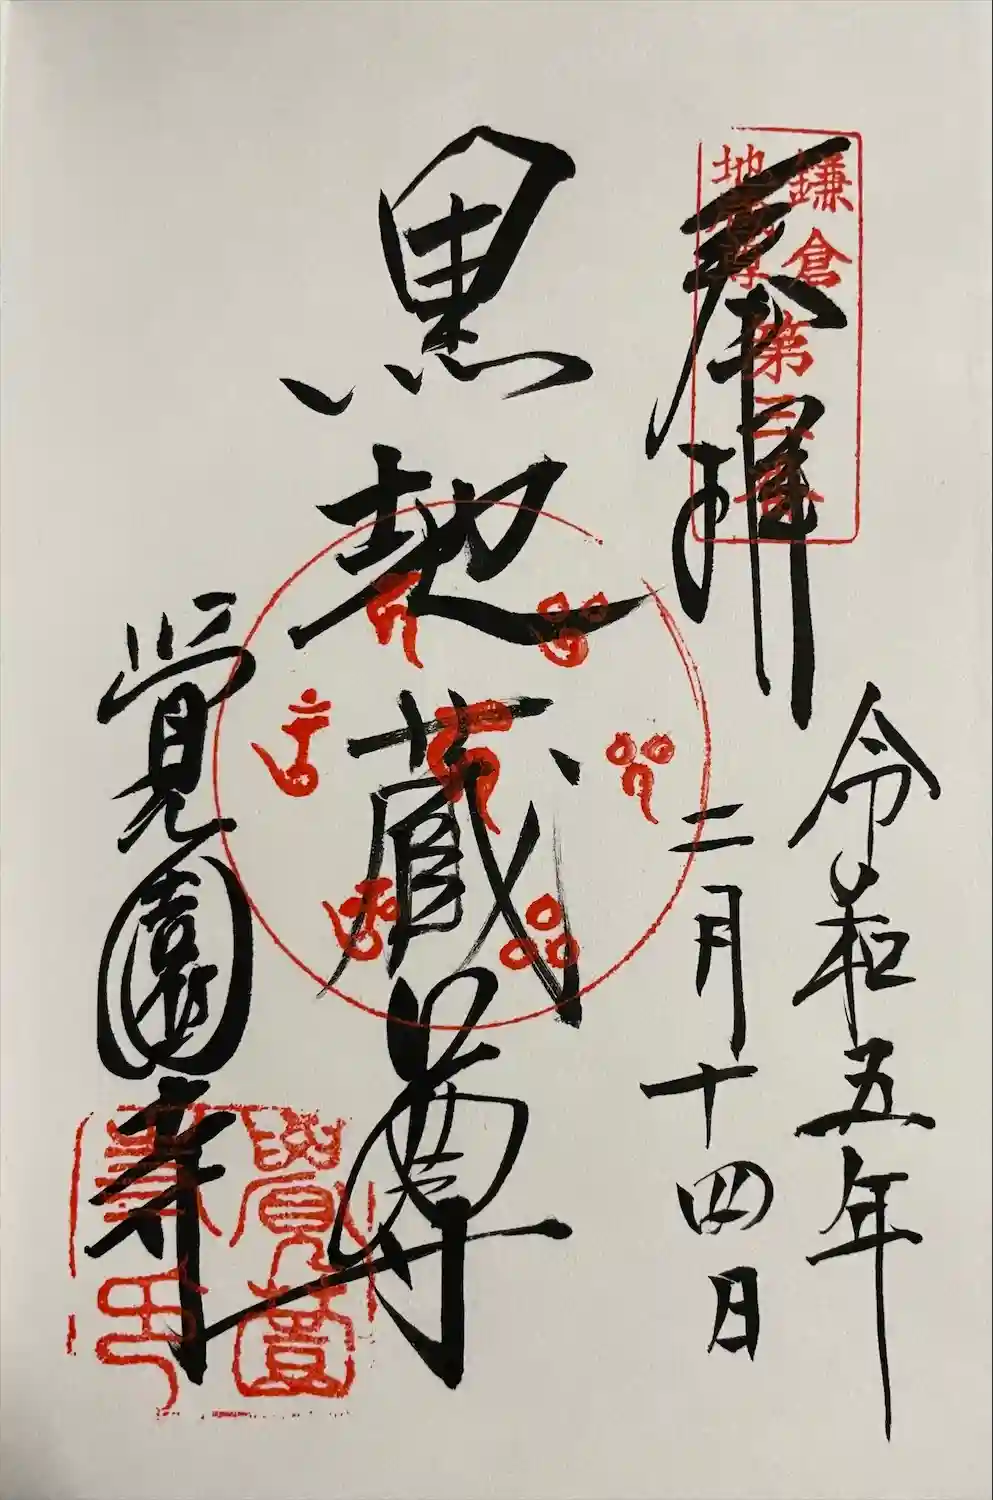 奉拝
鎌倉
地蔵尊
第三番
令和五年
二月十四日
黒地蔵尊
覚園寺
覺園
寺印